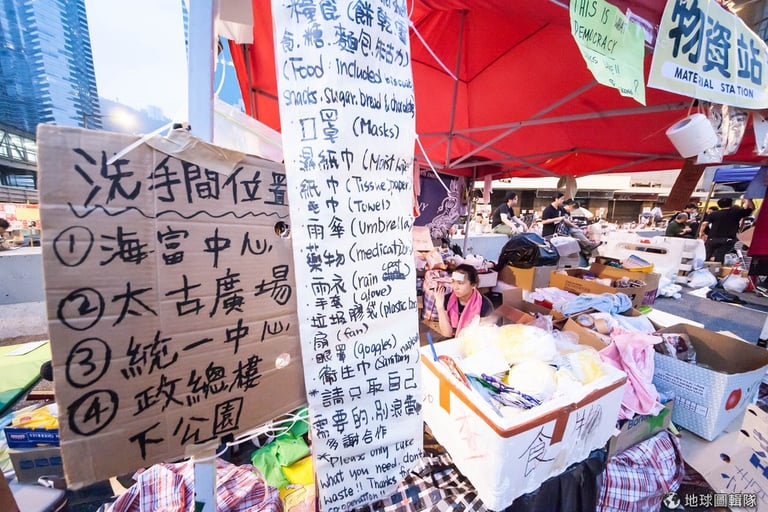 洗手間位置
① 海富中心
② 太古廣場
③ 統一中心
④ 政總樓
下公園
糧食 (餅乾,
食,糖,麵包,朱古力)
(Food: included biscuit
snacks, sugar, bread & chocolate)
口罩 (Masks)
濕紙巾 (Moist
紙巾 (Tissue paper)
毛巾 (Towel)
雨傘 (Umbrella)
藥物 (medication)
雨衣 (rain
手套 (glove)
垃圾膠袋 (plastic
扇 (fan)
眼罩 (goggles)
衛生巾 (Sanitary
*請只取自己
需要的,別浪費
多謝合作
*Please only take
what you need, don't
waste!! Thanks for
co-operation
THIS IS WHAT
DEMOCRACY
LOOKS like!!
物資站
MATERIAL STATION
食物
地球圖輯隊